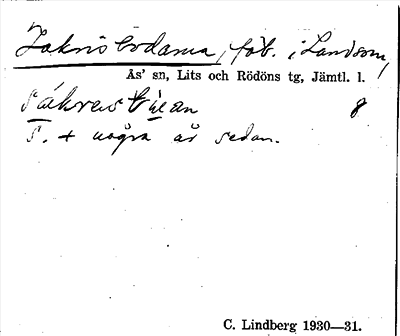 Zakrisbodarna, fäb. i Landsom,
Ås' sn, Lits och Rödöns tg, Jämtl. l.
8
s. + några år sedan.
C. Lindberg 1930—31.